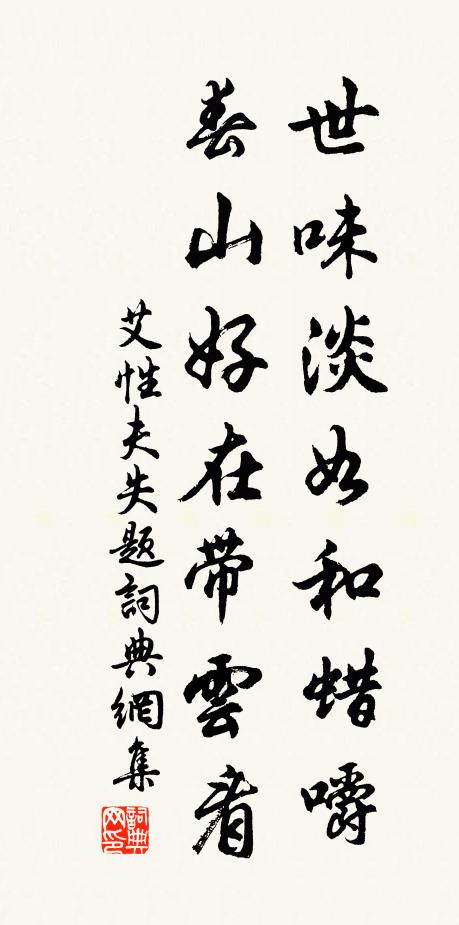 世味淡如和蜡嚼
春山好在带雲看
艾性夫失题詞典網集
詞典网印